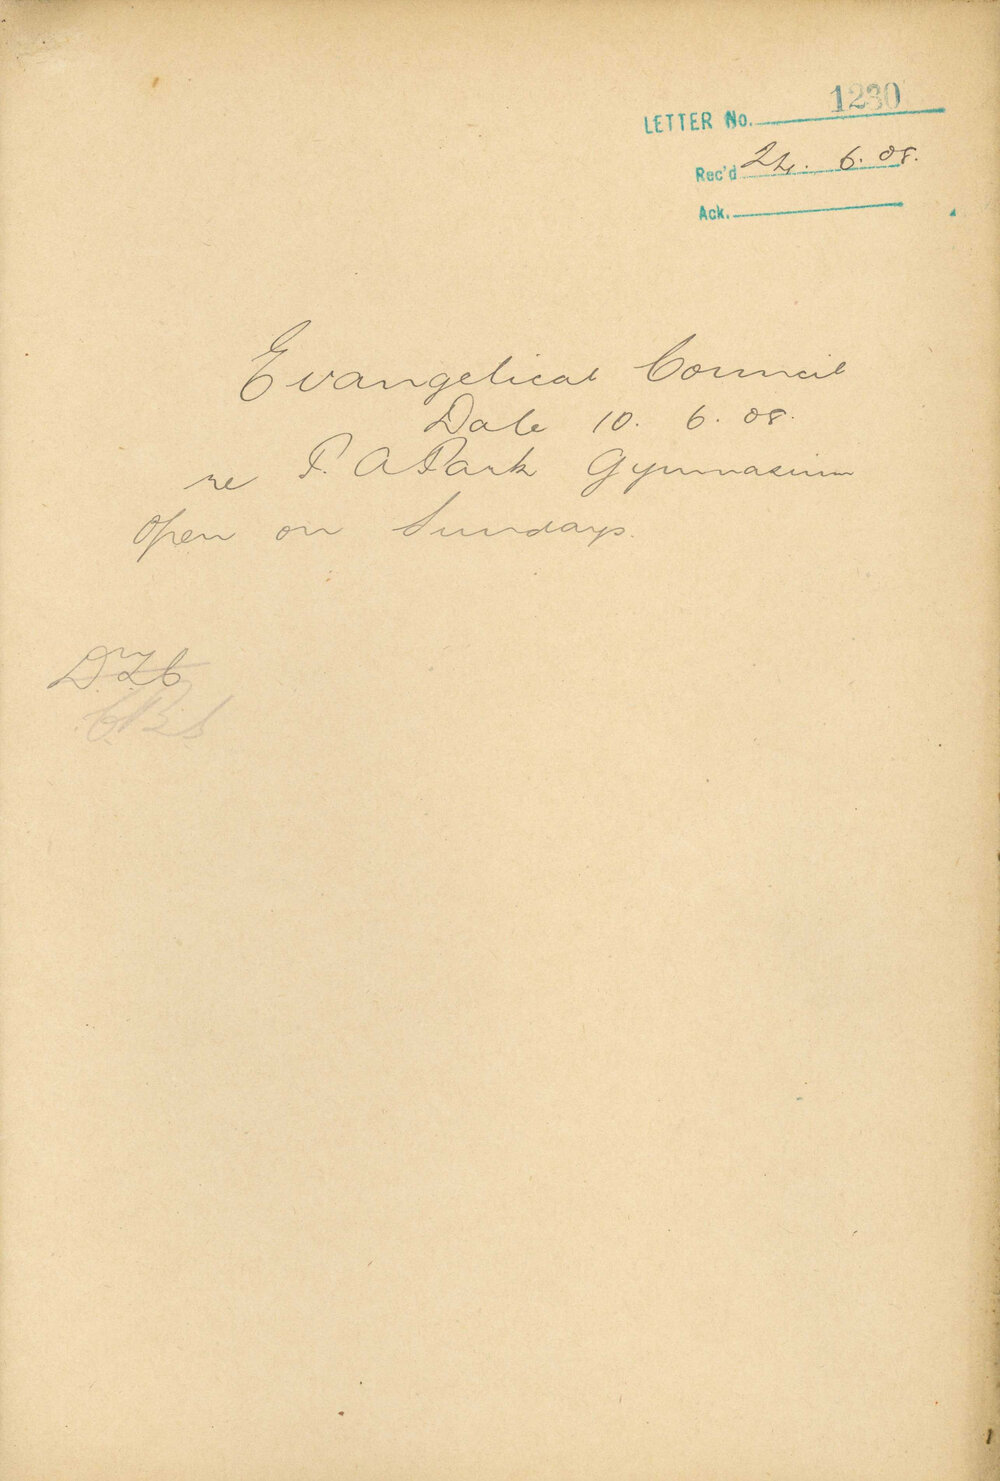 LETTER No. 1230
Rec'd 24. 6. 08.
Ack.
Evangelical Council
Date 10. 6. 08.
re P. A Park Gymnasium
open on Sundays.